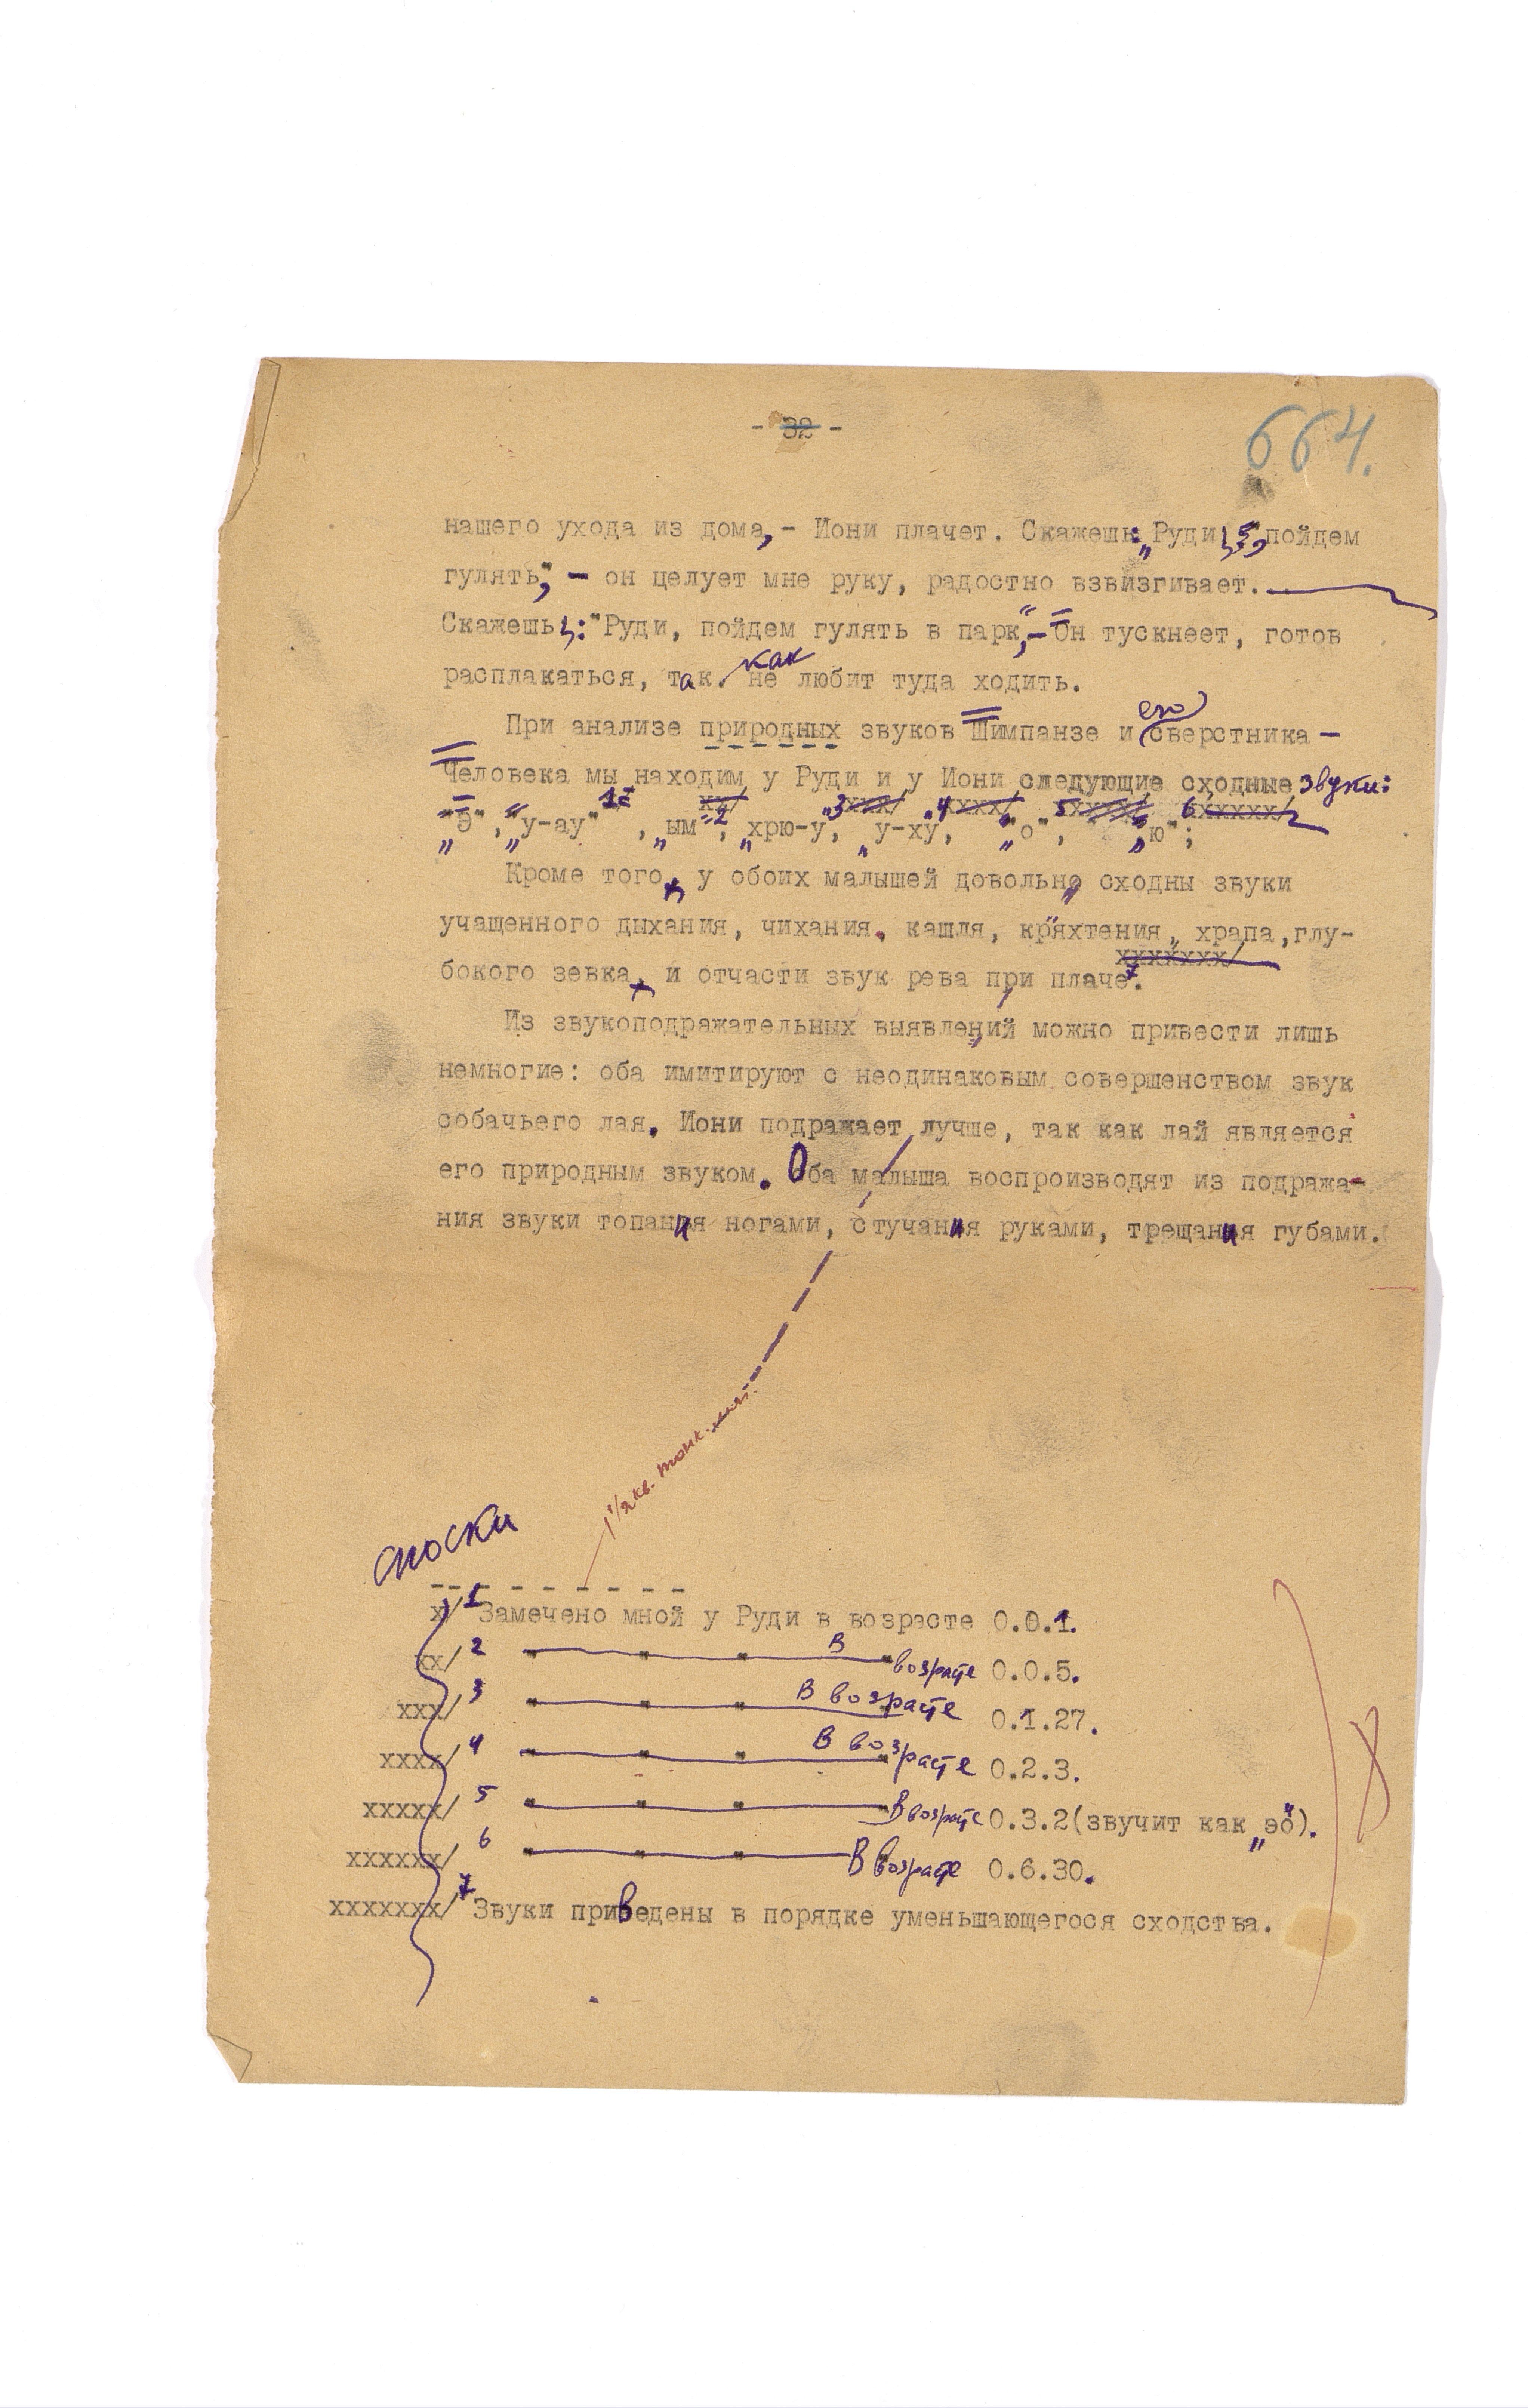 - 32 -
664.
нашего ухода из дома, - Иони плачет. Скажешь: „Руди, пойдем
гулять", - он целует мне руку, радостно взвизгивает.
Скажешь: "Руди, пойдем гулять в парк", - Он тускнеет, готов
расплакаться, так как не любит туда ходить.
При анализе природных звуков Шимпанзе и его сверстника -
Человека мы находим у Руди и у Иони следующие сходные звуки:
„Э", „у-ау"1, „ым"2, „хрю-у"3, „у-ху"4, „о"5, „ю"6;
Кроме того у обоих малышей довольно сходны звуки
учащенного дыхания, чихания, кашля, кряхтения, храпа, глу-
бокого зевка и отчасти звук рева при плаче7.
Из звукоподражательных выявлений можно привести лишь
немногие: оба имитируют с неодинаковым совершенством звук
собачьего лая. Иони подражает лучше, так как лай является
его природным звуком. Оба малыша воспроизводят из подража-
ния звуки топания ногами, стучания руками, трещания губами.
1/2 кв. тонк.
сноски
х/ 1 Замечено мной у Руди в возрасте 0.0.1.
хх/ 2 — " — " — " — В возрасте 0.0.5.
ххх/ 3 — " — " — " — В возрасте 0.1.27.
хххх/ 4 — " — " — " — В возрасте 0.2.3.
ххххх/ 5 — " — " — " — В возрасте 0.3.2(звучит как „эо").
хххххх/ 6 — " — " — " — В возрасте 0.6.30.
ххххххх/ 7 Звуки приведены в порядке уменьшающегося сходства.